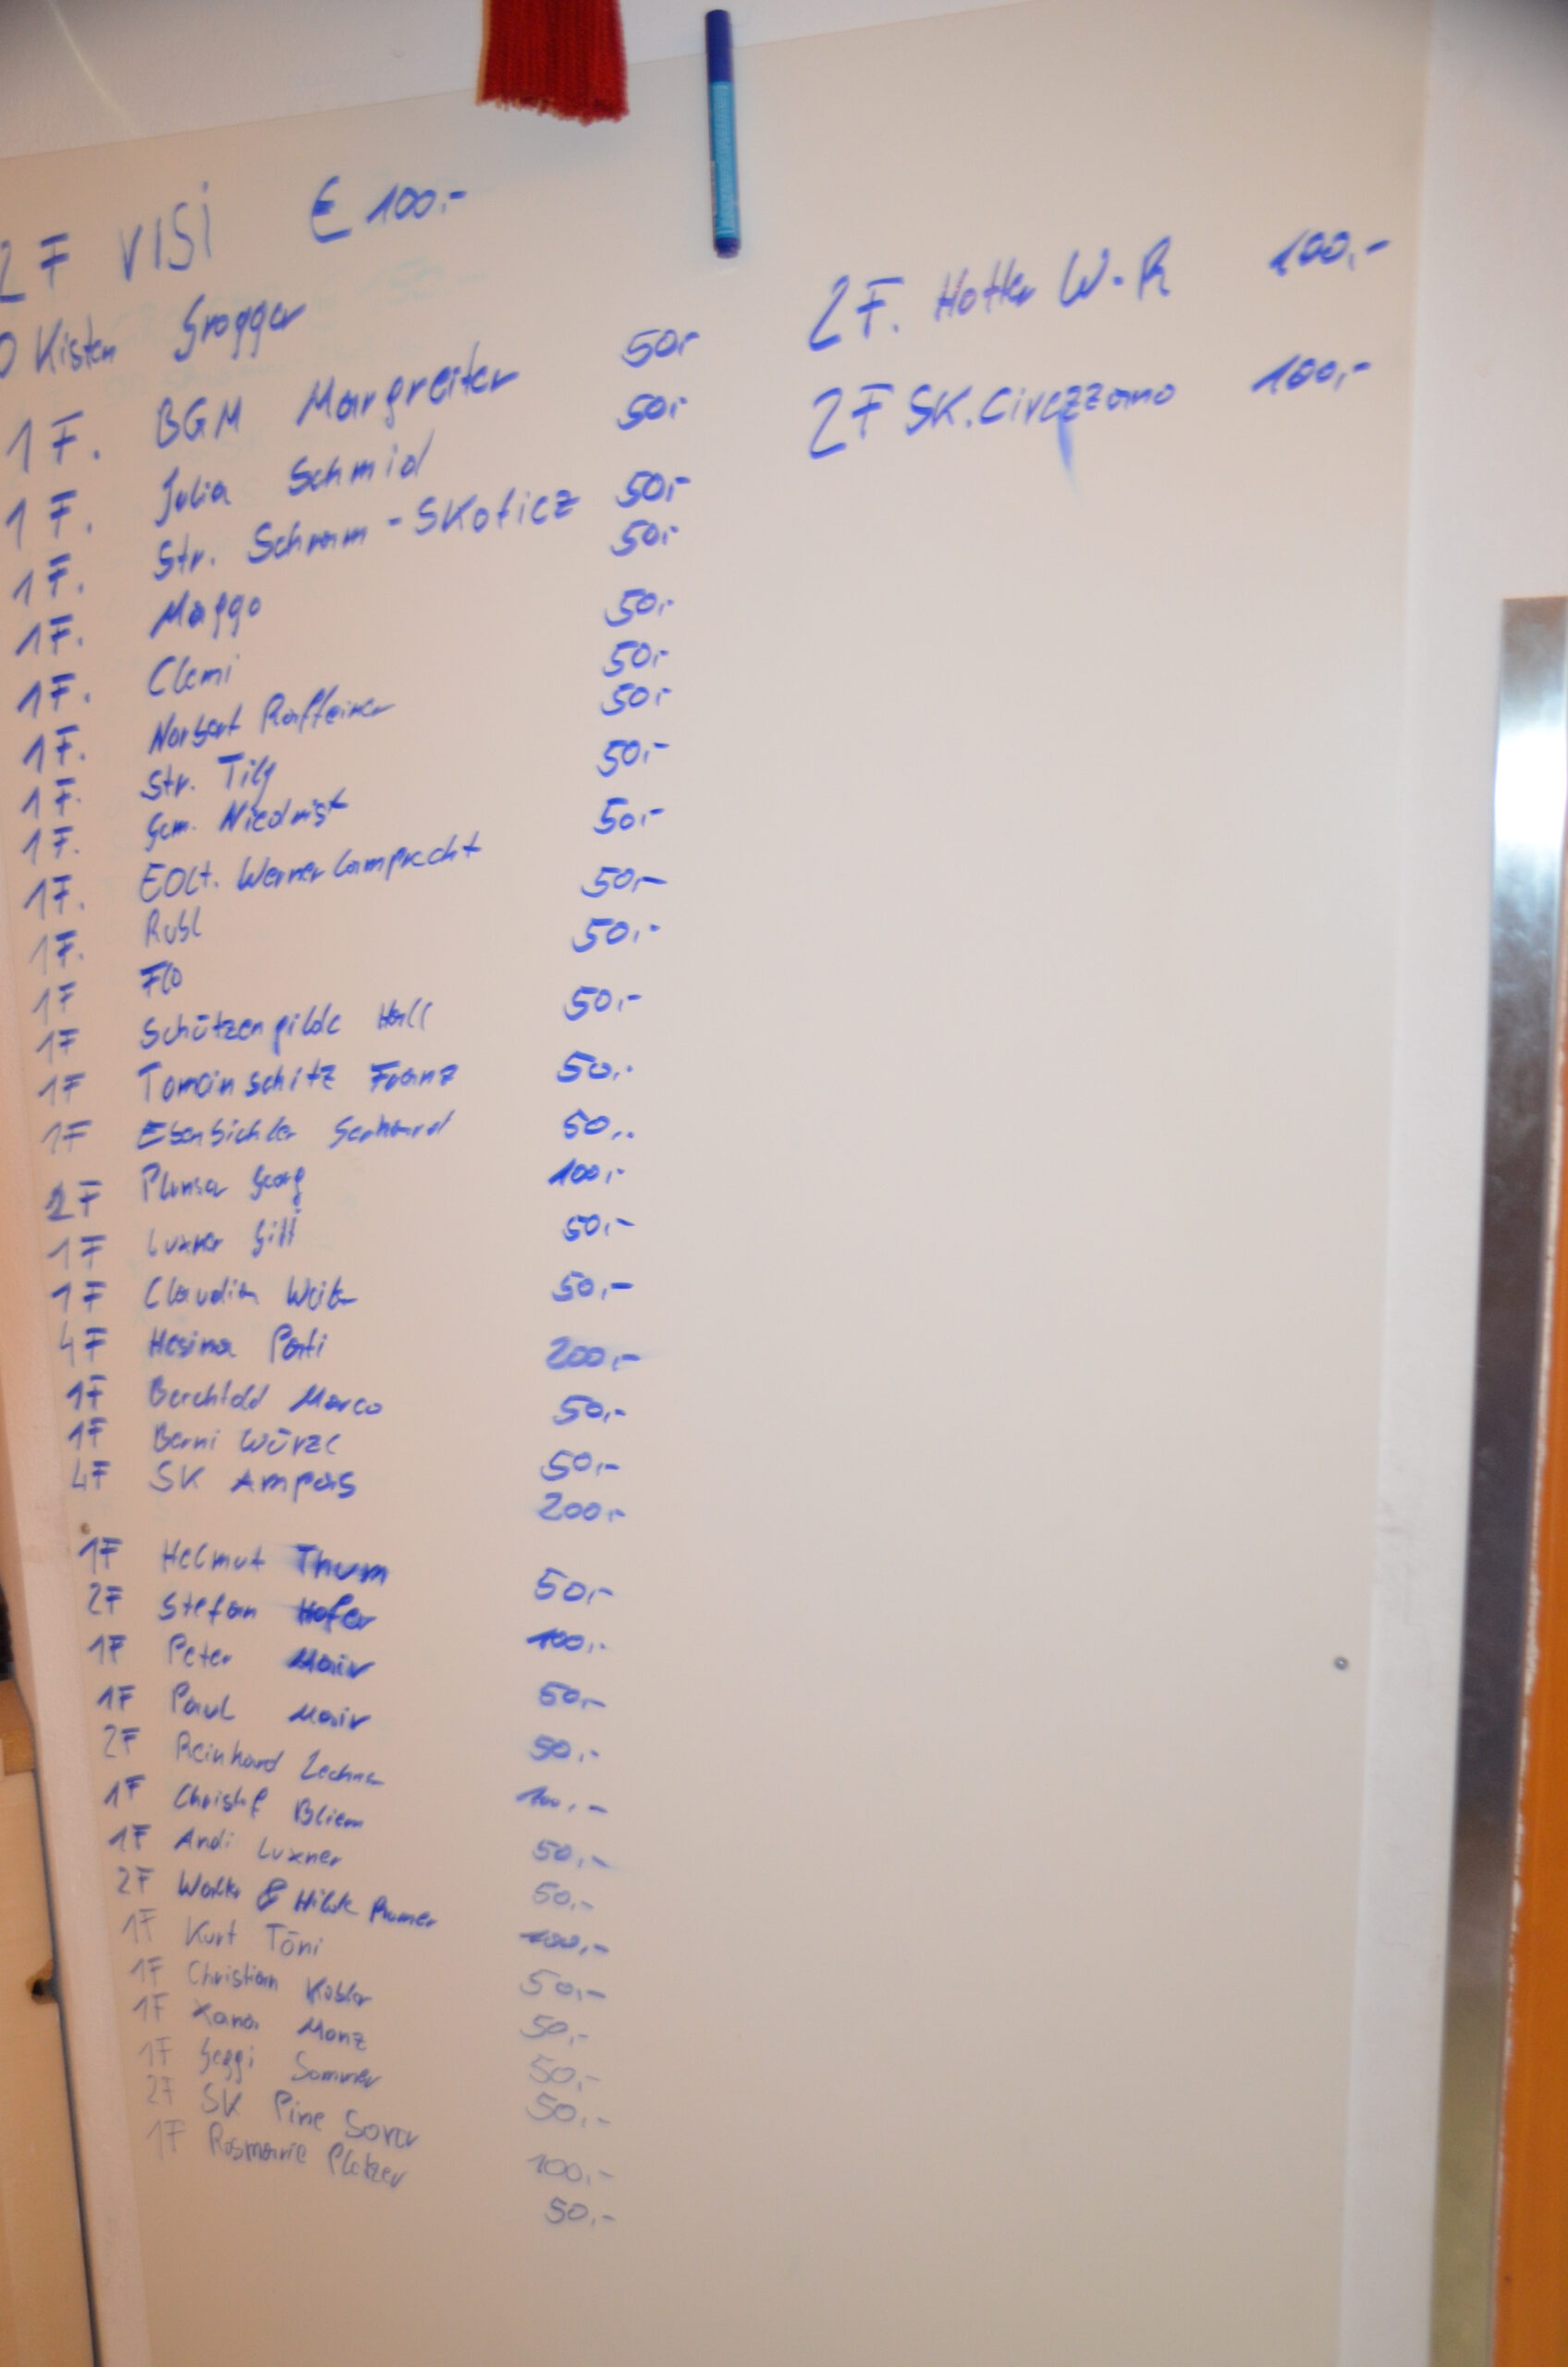 2F VISI € 100.-
Kisten Grogger
1F. BGM Margreiter 50,-
1F. Julia Schmid 50,-
1F. Str. Schramm-Skoficz 50,-
1F. Maggo 50,-
1F. Clemi 50,-
1F. Norbert Raffeiner 50,-
1F. Str. Tilg 50,-
1F. Gem. 50,-
1F. Werner Lamprecht 50,-
1F. Rubl 50,-
1F Flo 50,-
1F Schützengilde Hall 50,-
1F Tomanschitz Franz 50,-
1F Ebenbichler Gerhard 50,-
2F Georg 100,-
1F Luxner Gitti 50,-
1F Claudia 50,-
4F Hesina Patti 200,-
1F Berchtold Marco 50,-
1F Berni Würzl 50,-
4F SK Ampass 200,-
1F Helmut Thum 50,-
2F Stefan Hofer 100,-
1F Peter Mair 50,-
1F Paul Mair 50,-
2F Reinhard Lechner 100,-
1F Christof Bliem 50,-
1F Andi Luxner 50,-
2F Walter & Hilde 100,-
1F Kurt Töni 50,-
1F Christian Kobler 50,-
1F Xandi Manz 50,-
1F Seggi Sommer 50,-
2F SK Pine Sover 100,-
1F Rosmarie Platzer 50,-
2F. Hotter W-R 100,-
2F SK. Civezzano 100,-